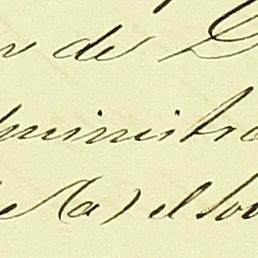 r de D
dministra
e (a) el sou